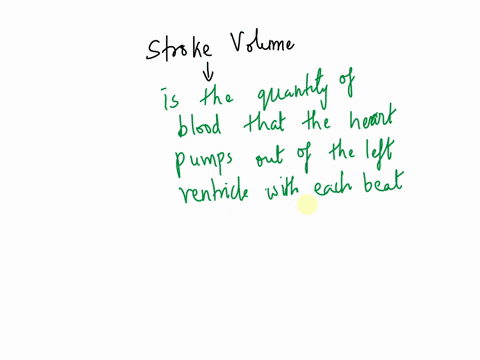 Stroke Volume
is the quantity of
blood that the heart
pumps out of the left
ventricle with each beat